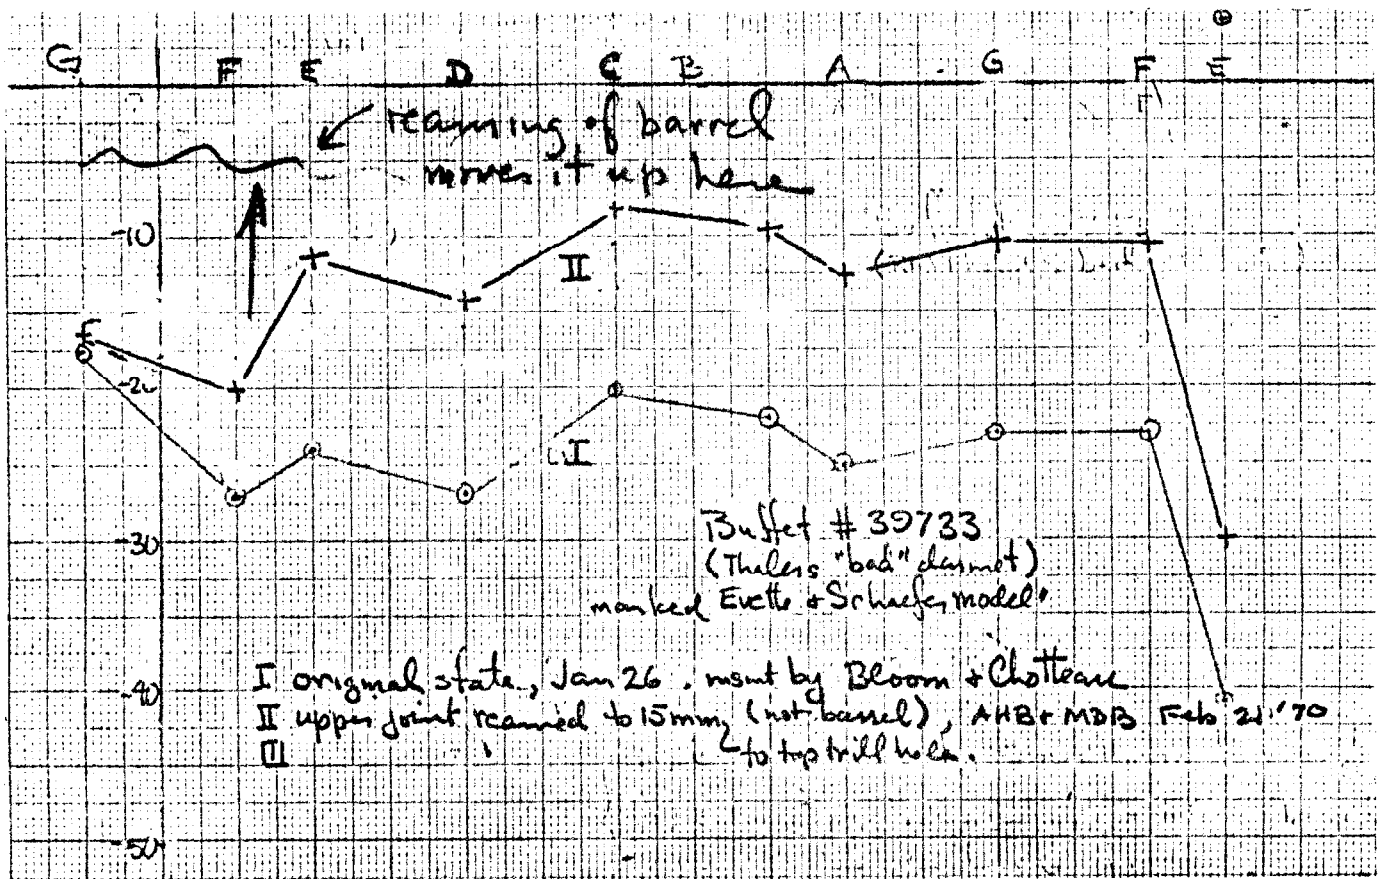 G F E D C B A G F E
F
reaming of barrel
moves it up here
-10
II
-20
I
-30
Buffet # 39733
(Thalers "bad" clarinet)
marked Evette & Schaefer model"
-40
I original state, Jan 26. msmt by Bloom & Chotteau
II upper joint reamed to 15mm, (not barrel), AHB & MDB Feb 21 '70
to top trill hole.
III
-50